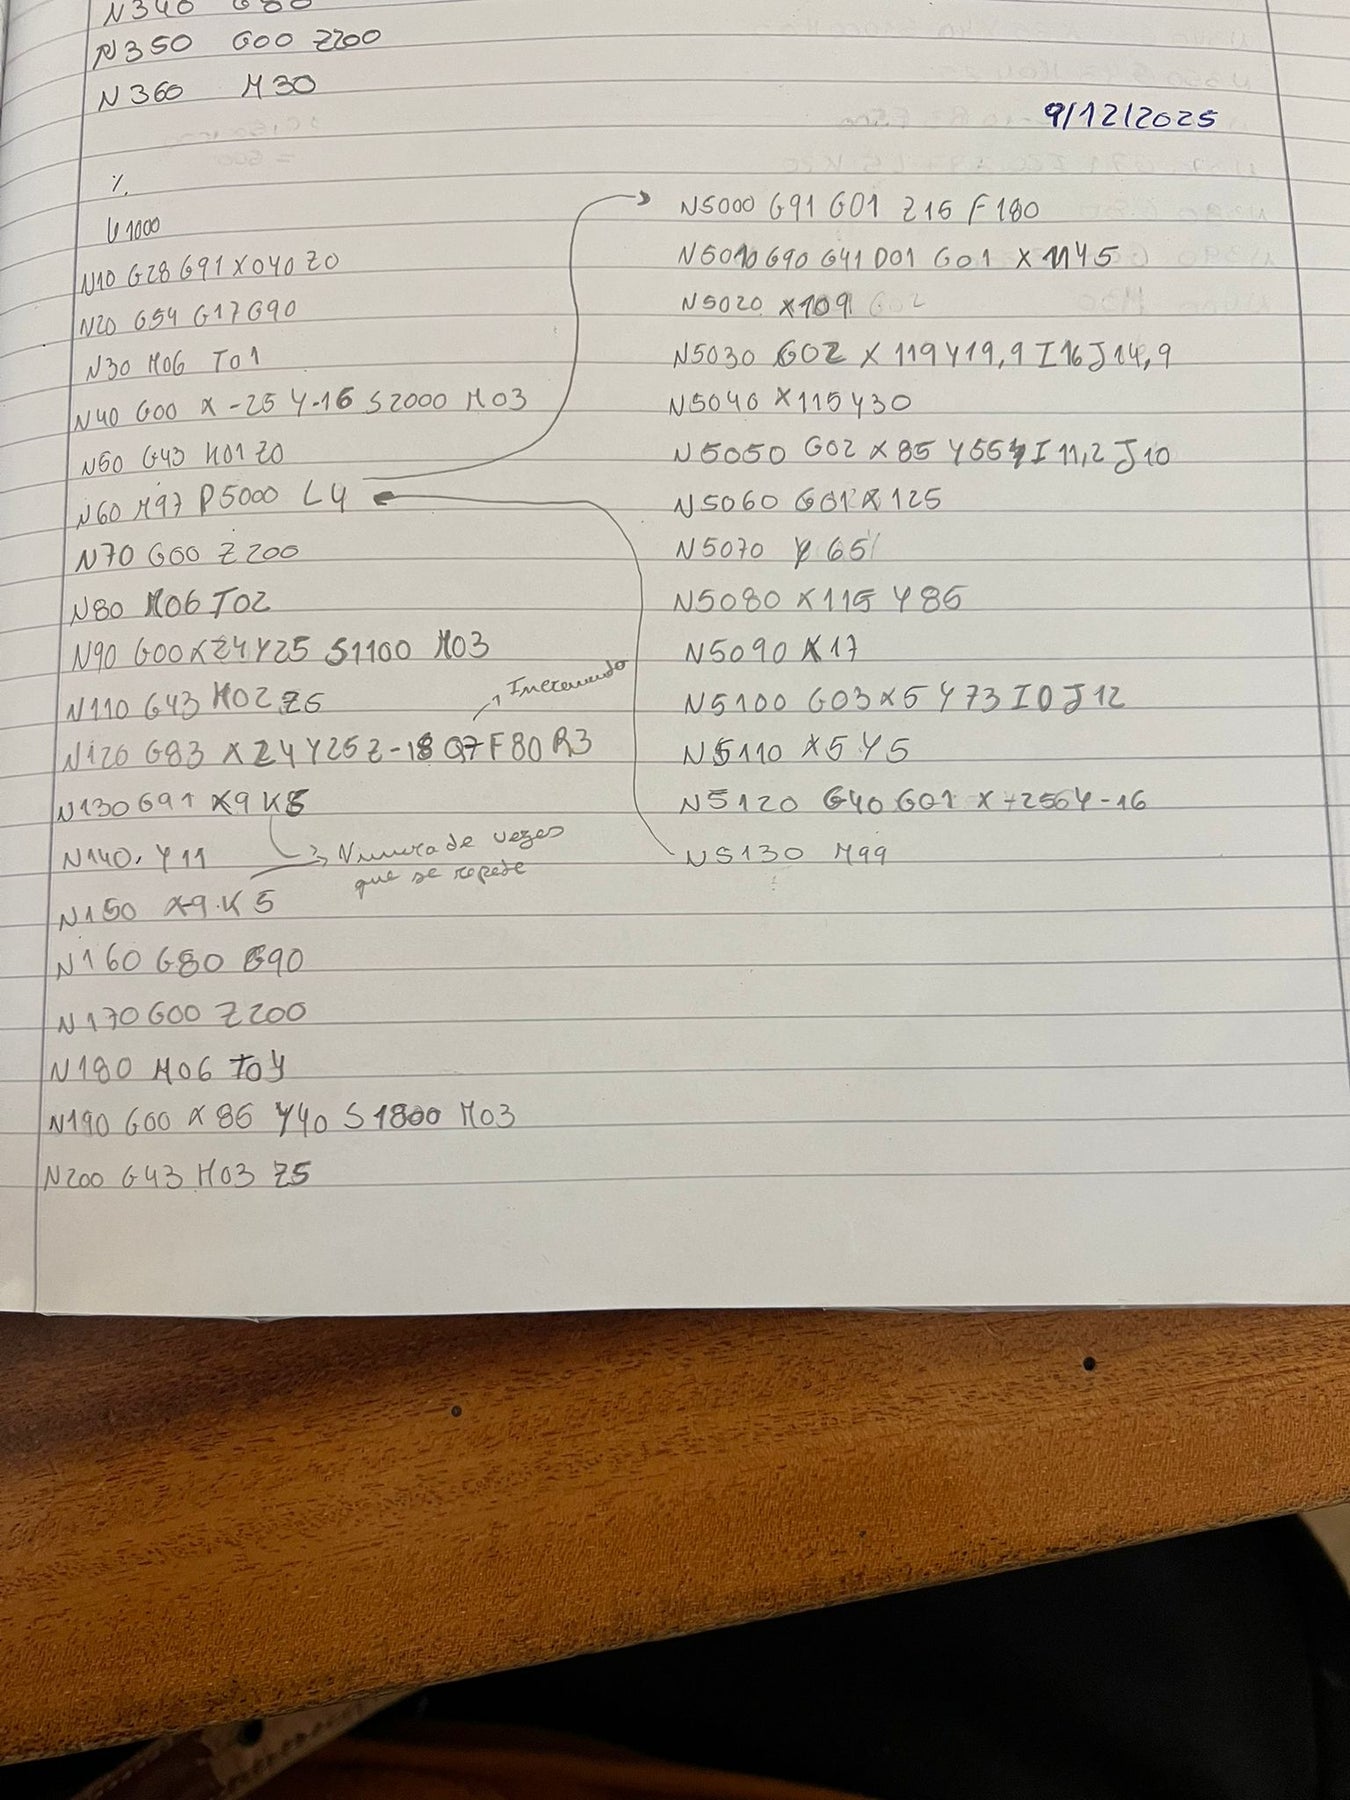 N340 G80
N350 G00 Z200
N360 M30
9/12/2025
%
N10 G28 G91 X0 Y0 Z0
N20 G54 G17 G90
N30 M06 T01
N40 G00 X-25 Y-16 S2000 M03
N50 G43 H01 Z0
N60 M97 P5000 L4
N70 G00 Z200
N80 M06 T02
N90 G00 X24 Y25 S1100 M03
N110 G43 H02 Z5
Incremento
N120 G83 X24 Y25 Z-18 Q7 F80 R3
N130 G91 X9 K5
N140. Y11
Numero de vezes
que se repete
N150 X-9. K5
N160 G80 G90
N170 G00 Z200
N180 M06 T04
N190 G00 X85 Y40 S1800 M03
N200 G43 H03 Z5
N5000 G91 G01 Z15 F180
N5010 G90 G41 D01 G01 X1145
N5020 X109 G02
N5030 G02 X119 Y19,9 I16 J14,9
N5040 X115 Y30
N5050 G02 X85 Y55 I11,2 J10
N5060 G01 X125
N5070 Y65
N5080 X115 Y85
N5090 X17
N5100 G03 X5 Y73 I0 J12
N5110 X5 Y5
N5120 G40 G01 X-25 Y-16
N5130 M99